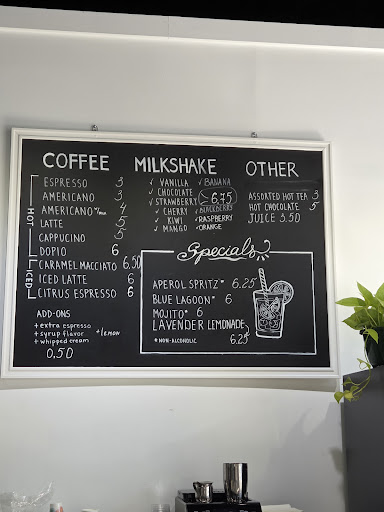 COFFEE
HOT
ESPRESSO 3
AMERICANO 3
AMERICANO 4
LATTE 5
CAPPUCINO 5
DOPIO 6
ICED
CARAMEL MACCIATO 6.50
ICED LATTE 6
CITRUS ESPRESSO 6
ADD-ONS
+ extra espresso
+ syrup flavor
+ whipped cream
+ lemon
0.50
MILKSHAKE
✓ VANILLA
✓ CHOCOLATE
✓ STRAWBERRY
✓ CHERRY
✓ KIWI
✓ MANGO
✓ BANANA
6.75
✓ BLACKBERRY
✓ RASPBERRY
✓ ORANGE
OTHER
ASSORTED HOT TEA 3
HOT CHOCOLATE 5
JUICE 3.50
Specials
APEROL SPRITZ* 6.25
BLUE LAGOON* 6
MOJITO* 6
LAVENDER LEMONADE
6.25
* NON-ALCOHOLIC